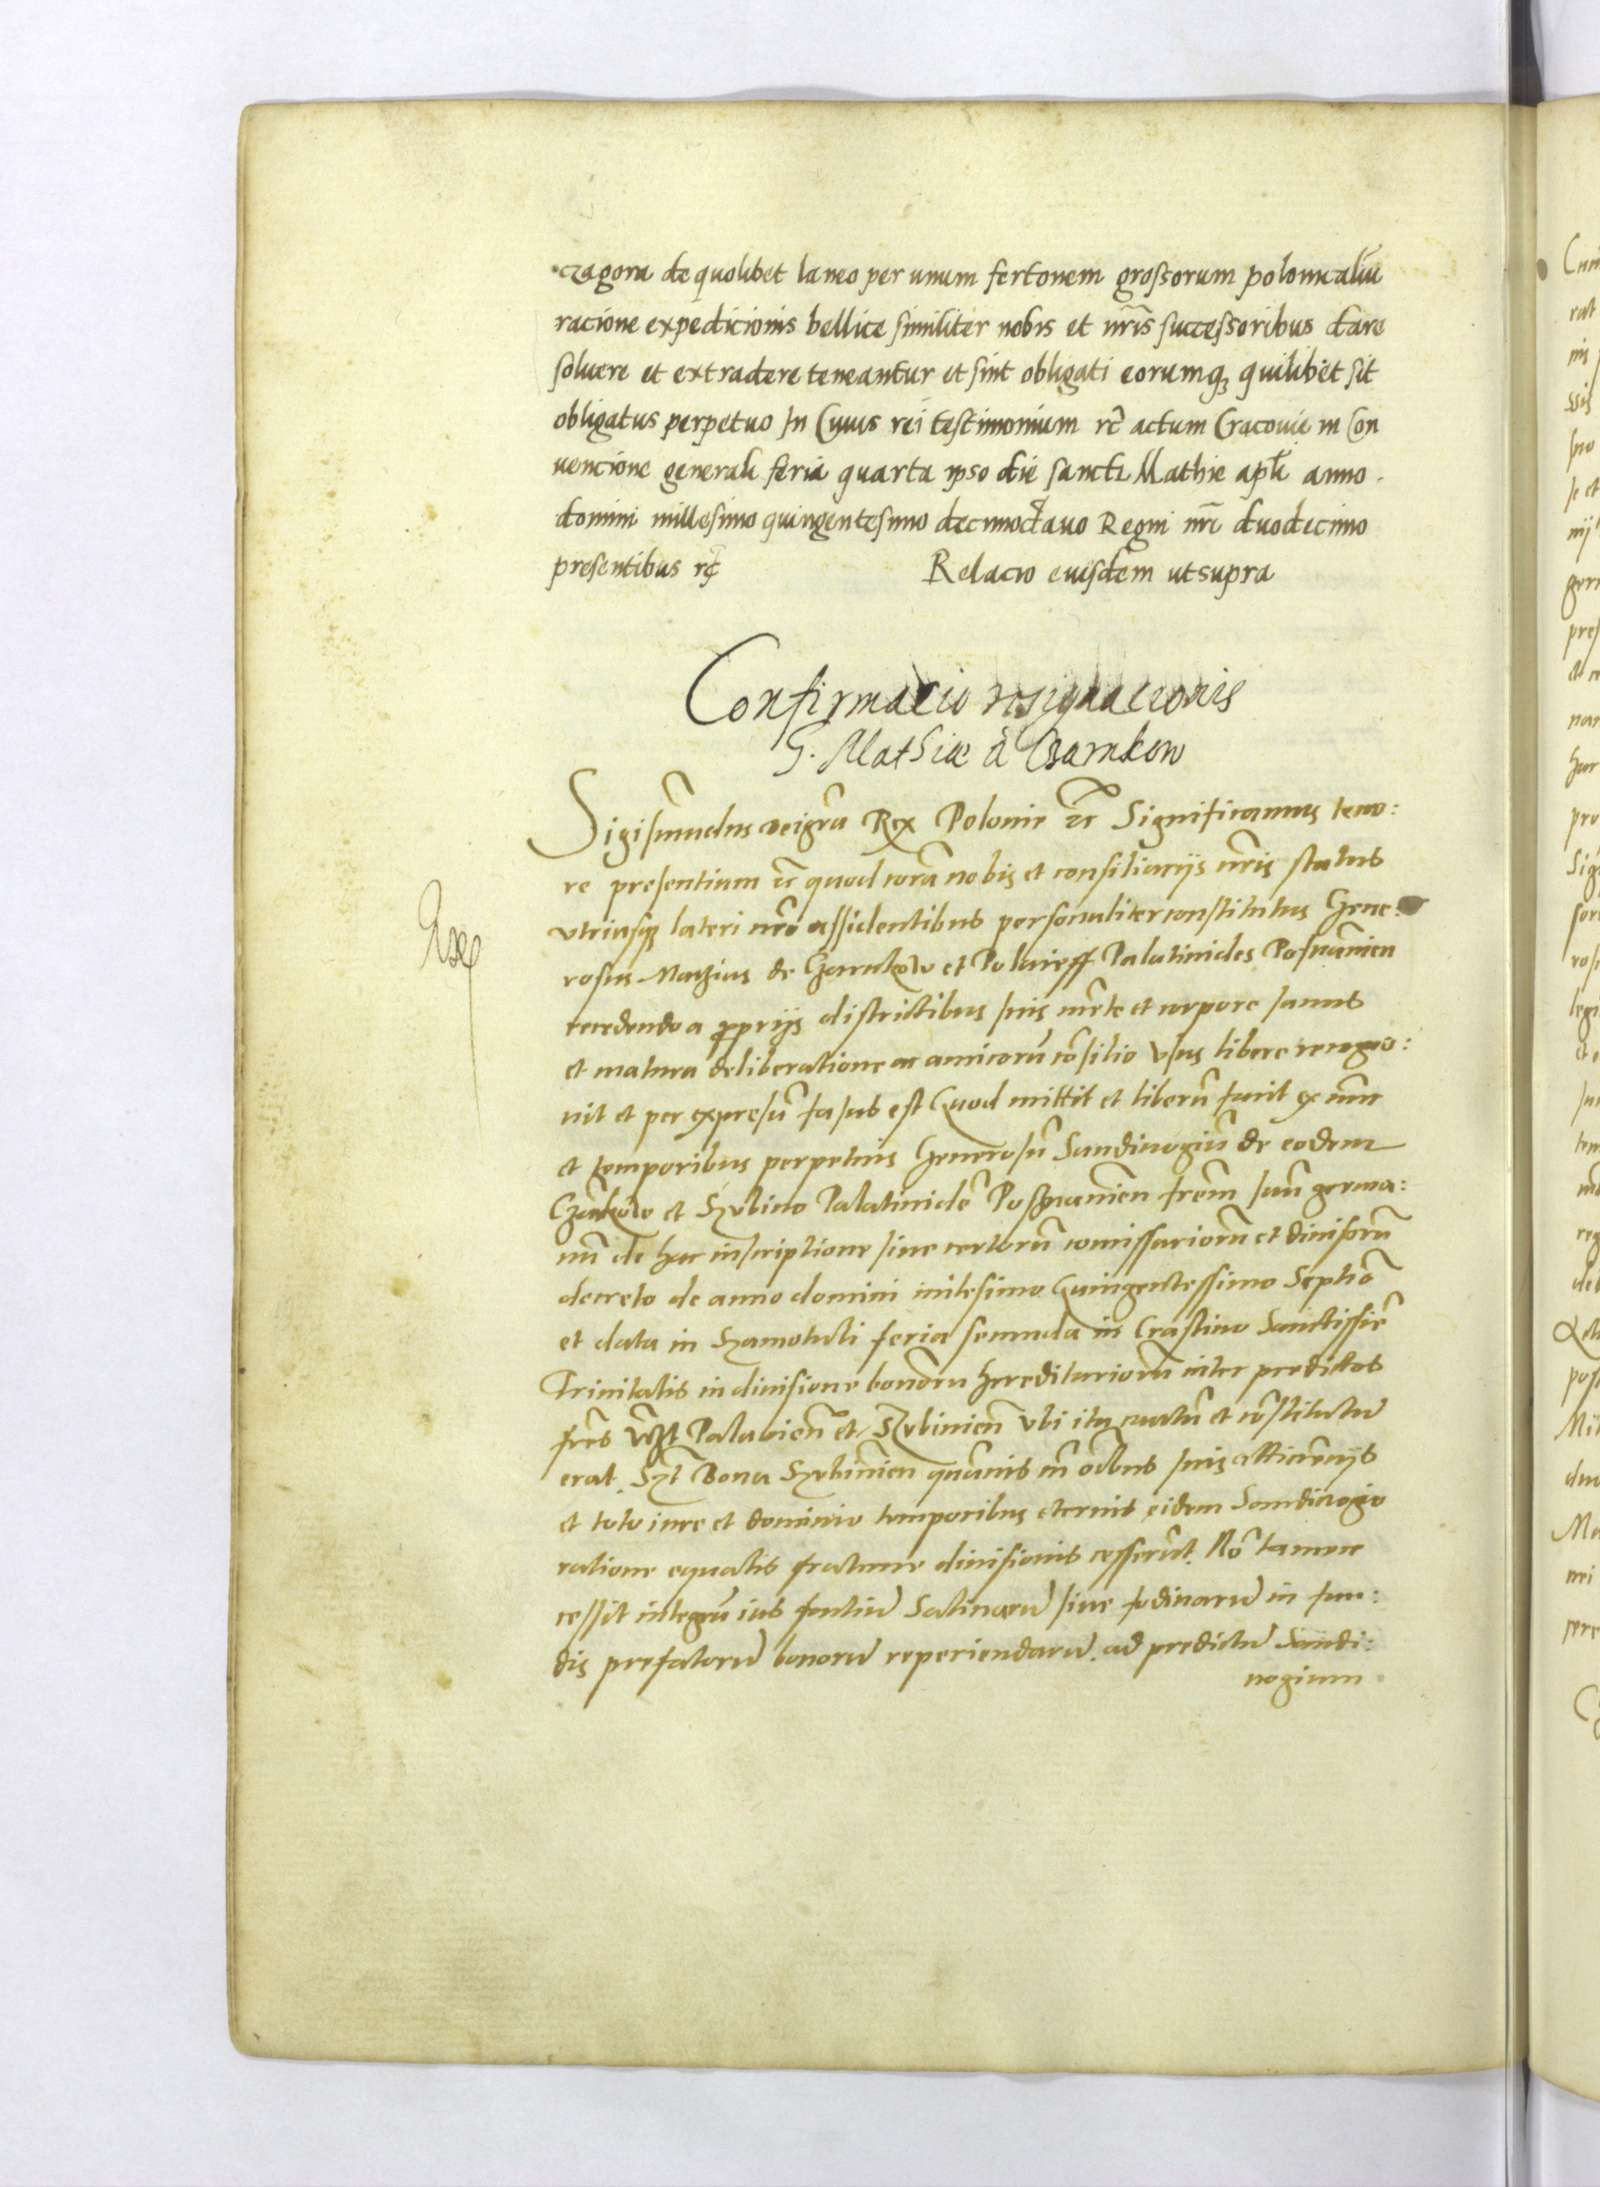 czagora de quolibet laneo per unum fertonem grossorum polonicaliũ
racione expedicionis bellice similiter nobis et nr̃is successoribus dare
soluere et extradere teneantur et sint obligati eorumq; quilibet sit
obligatus perpetuo In Cuius rei testimonium rc̃ actum Cracouie in Con
uencione generali feria quarta ipso die sancti Mathie apl̃i anno
domini millesimo quingentesimo decimoctauo Regni nr̃i duodecimo
presentibus rc̃ Relacio euisdem ut supra
Confirmacio resignacionis
G. Mathiæ à Czarnkow
Sigismũdus dei gr̃a Rex Polonie etc̃ Significamus teno:
re presentium etc̃ quod corã nobis et consiliarijs nr̃is status
vtriusq; lateri nr̃o assidentibus personaliter constitutus Gene:
rosus Mathias de Czarnkow et Palatinides Posnanien̄
recedendo a proprijs districtibus suis mẽte et corpore sanus
et matura deliberatione ac amicorũ cõsilio vsus libere recogno:
uit et per expressũ fassus est Quod mittit et liberũ facit ex nũc
et temporibus perpetuis Generosũ Sandiuogiũ de eodem
Czarnkow et Szubino Palatinidẽ Posznanien̄ fr̃em suũ germa:
nũ de hac inscriptione siue certorũ comissariorũ et diuisorũ
decreto de anno domini milesimo Quingentessimo Septiõ
et data in Szamotuli feria secunda in Crastino Sanctissiẽ
Trinitatis in diuisione bonorũ hereditariorũ inter predictos
fr̃es et Szubinien̄ vbi ita et cõstitutũ
erat Bona Szubinien̄ quãuis cũ oĩbus suis atti͂nencijs
et toto iure et dominio temporibus eternis eidem Sandiuogio
ratione equalis fraterne diuisionis cesserũt. Nõ tamen
cessit integrũ ius fontiũ Salinarũ siue fodinarũ in fun:
dis prefatorũ bonorũ reperiendarũ ad predictũ Sandi:
uogium